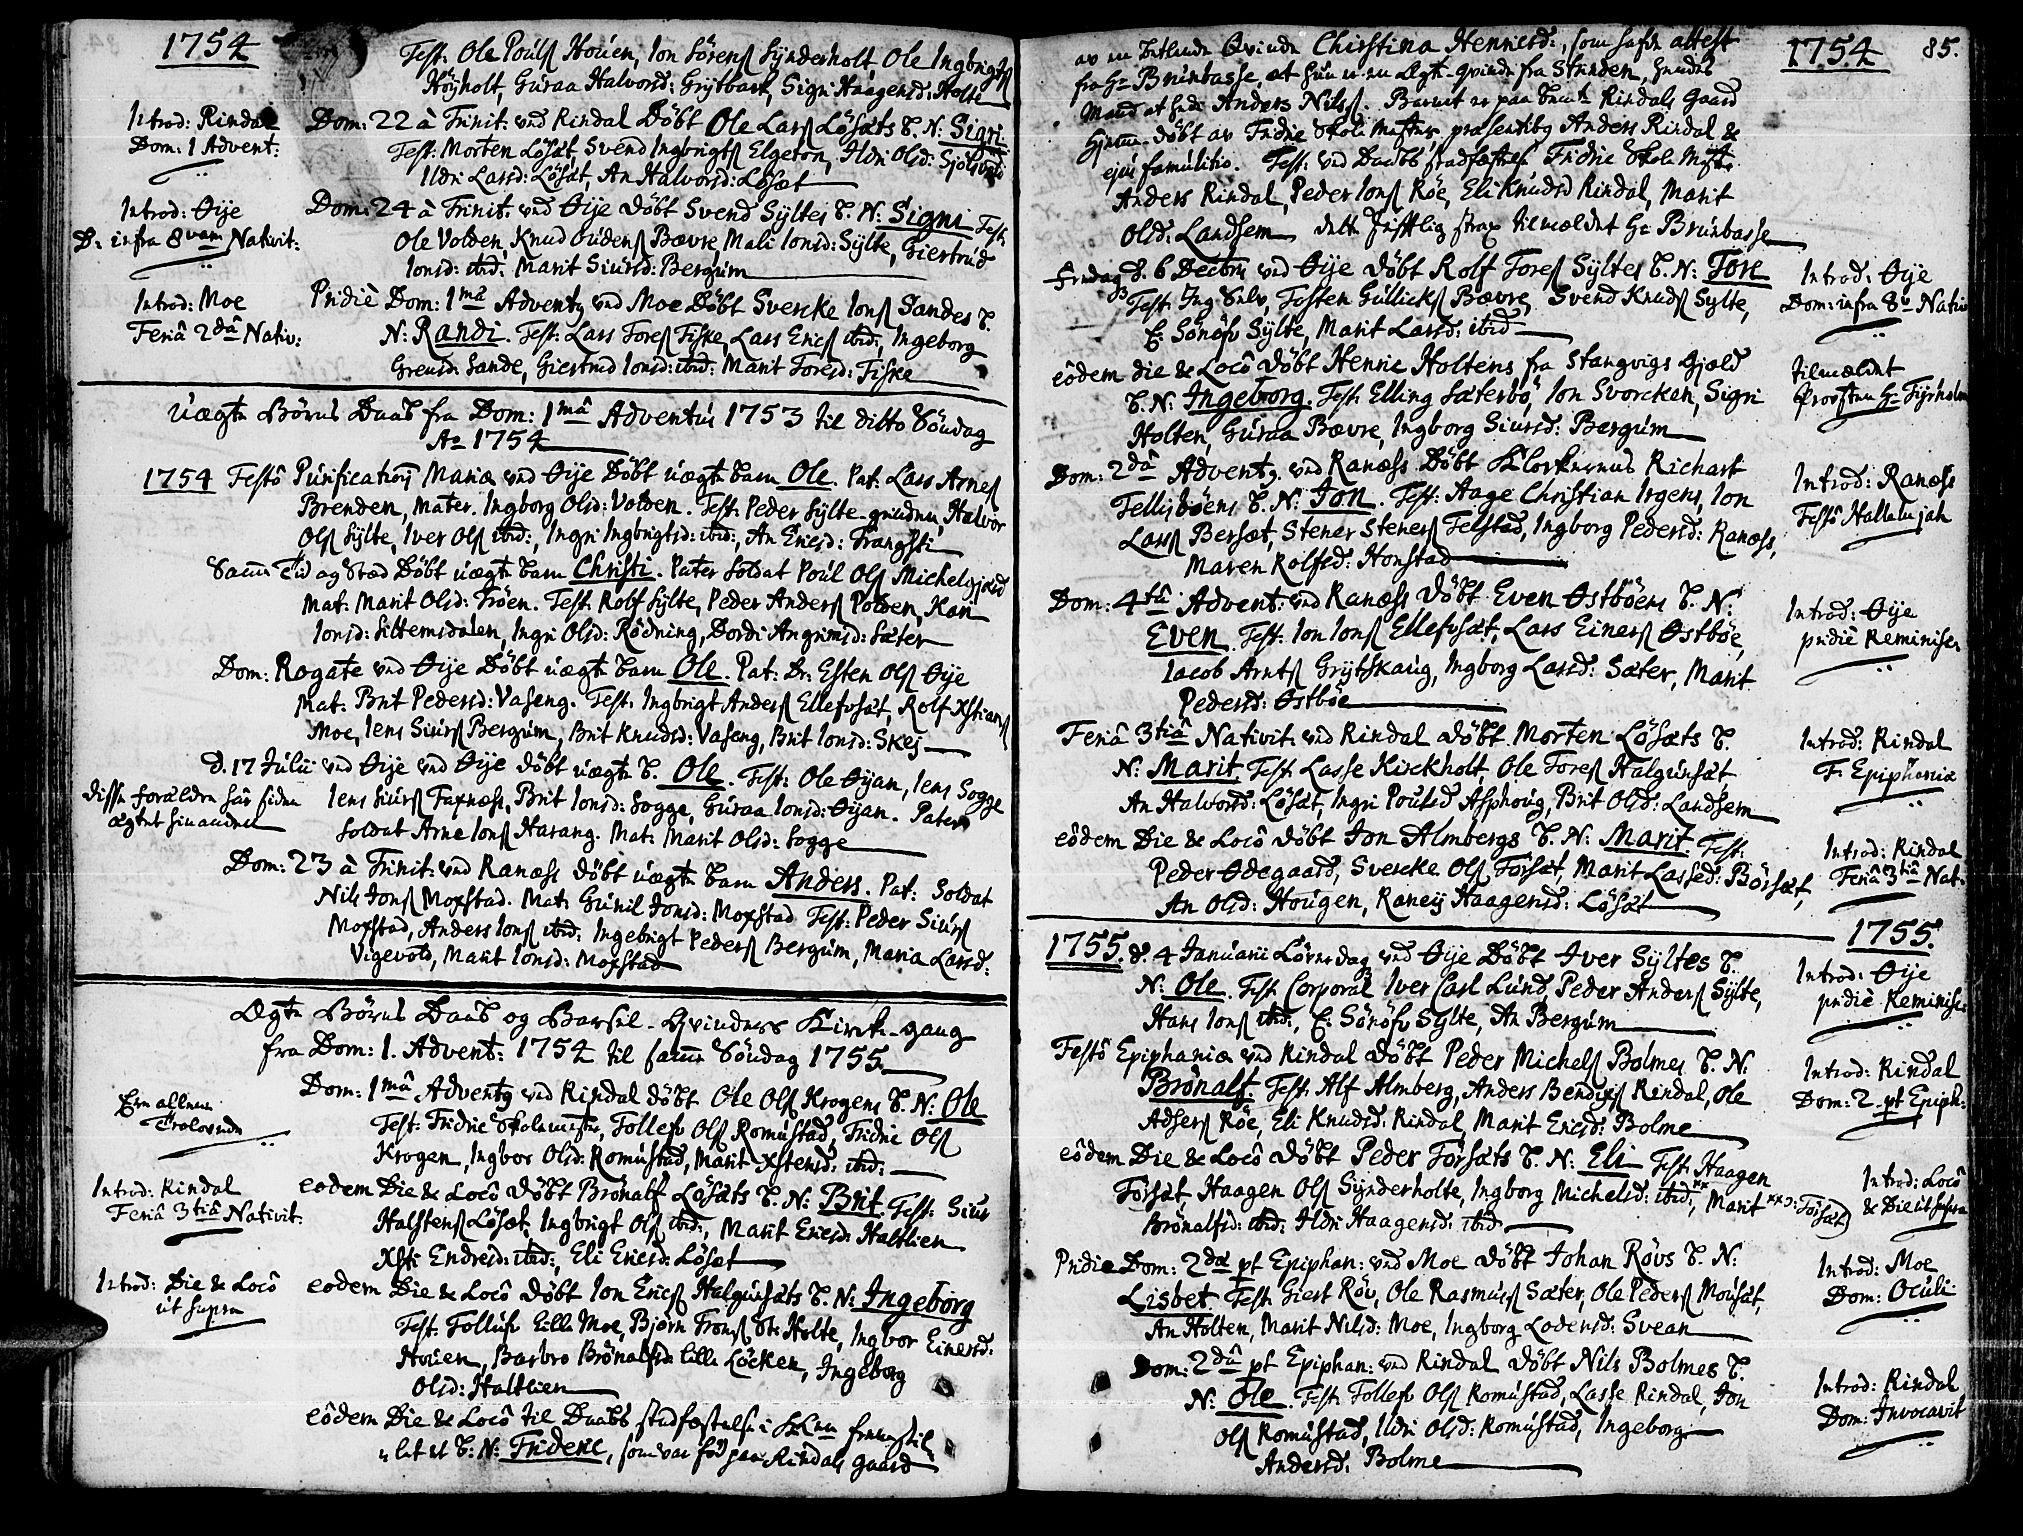 1754
Test: Ole Poüls Hoüen, Ion Sörens Synderholt, Ole Ingbrigts
Höyholt, Güraa Halvorsd: Grytbach, Sigri Haagensd: Holte
Introd: Rindal
Dom: 1 Advent:
Dom: 22 à Trinit: ved Rindal Döbt Ole Lars Lösæts B. N: Sigri
Test: Morten Lösæt, Svend Ingbrigts Elgeton, Ildri Olsd: Sjölsvold
Ildri Larsd: Lösæt, An Halvorsd: Lösæt
Introd: Øije
D: infra 8vam Nativit:
Dom: 24 à Trinit: ved Øije Döbt Svend Syltes B. N: Signi Test:
Ole Volden, Knud Güdens Bævre, Mali Ionsd: Sylte, Giertrüd
Ionsd: ibid: Marit Siürsd: Bergüm
Introd: Moe
Feriâ 2dâ Nativ:
Pridiè Dom: 1mâ Advent9 ved Moe Döbt Svercke Ions Sandes B.
N: Randi. Test: Lars Tores Fiske, Lars Erics ibid:, Ingeborg
Grensd: Sande, Giertrüd Ionsd: ibid: Marit Toresd: Fiske
Uægte Börns Daab fra Dom: 1mâ Adventüs 1753 til ditto Söndag
Ao 1754
1754 Festô Pürificationis Mariæ ved Øije Döbt üægte barn Ole. Pat: Lars Arnes
Brenden, Mater. Ingborg Olsd: Volden. Test: Peder Sylte-grinden, Halvor
Ols Sylte, Iver Ols ibid:, Ingri Ingbrigtsd: ibid:, An Ericsd: Trangsti
Samme Tid og Stæd Döbt üægte barn Christi. Pater Soldat Poül Ols Michelgjerd
Mat: Marit Olsd: Tröen. Test. Rolf Sylte, Peder Anders Polden, Kari
Ionsd: Siltemsdalen, Ingri Olsd: Rödning, Dordi Angrimsd: Sæter
Dom: Rogate ved Øije Döbt üægte barn Ole. Pat: Dr: Esten Ols Øije
Mat: Brit Pedersd: Vaseng. Test. Ingbrigt Anders Ellefvsæt, Rolf Xstians
Moe, Iens Siürs Bergüm, Brit Knüdsd: Vaseng, Brit Ionsd: Skej
D. 17 Jülii ved Øije ved Øije döbt üægte B. Ole. Test: Ole Øijan, Iens Sogge
disse forældre har siden
ægtet hinanden
Iens Siürs Faxnæss, Brit Ionsd: Sogge, Güraa Ionsd: Øijan. Pater
Soldat Arne Ions Harang. Mat: Marit Olsd: Sogge
Dom: 23 à Trinit: ved Ranæss döbt üægte barn Anders. Pat: Soldat
Nils Ions Moxstad. Mat: Günil Ionsd: Moxstad Test: Peder Siürs
Moxstad, Anders Ions ibid: Ingebrigt Peders Bergüm, Maria Larsd:
Vigevold, Marit Ionsd: Moxstad
Ægte Börns Daab og Barsel-Qvinders Kirck-gang
fra Dom: 1. Advent: 1754 til samme Söndag 1755.
Ere allene
Trolovede
Dom: 1mâ Advent9 ved Rindal döbt Ole Ols Krogens B. N: Ole
Test: Fridric Skolemester, Tollefv Ols Romüstad, Fridric Ols
Krogen, Ingbor Olsd: Romüstad, Marit Xstensd: ibid:
Introd: Rindal
Feriâ 3tiâ Nativit:
eodem Die & Locô döbt Brönalf Lösæts B. N: Brit. Test: Siür
Halstens Lösæt, Ingbrigt Ols ibid:, Marit Ericsd: Haltlien
Xsti Endresd: ibid:, Eli Ericsd: Lösæt
Introd: Die & Locô
üt süpra
eodem Die & Locô döbt Ion Erics Halgünsæts B. N: Ingeborg
Test: Tollüfv Lille Moe, Bjørn Trons Str Holte, Ingbor Einersd:
Hoüen, Barbro Brönalfsd: Lille Löcken, Ingeborg
Olsd: Haltlien
eôdem Die & Locô til Daabs stadfæstelse i Kirken fremstil-
let et B. N: Frideric, som var föd paa Rindals gaard
1754 85.
av en Betlende Qvinde Christina Henricsd:, som hafde attest
fra Hr Brünbasse, at hun er en Ægte-qvinde fra Strinden, hendes
Mand at hede Anders Nilss. Barnet er paa bemte Rindals Gaard
hjemme-döbt av Fridric Skole Mester, præsentibg Anders Rindal &
ejus famülitio. Test: ved Daabs stadfæstelse Fridric Skole Mestr
Anders Rindal, Peder Ions Röe, Eli Knüdsd Rindal, Marit
Olsd: Landsem dette skriftlig strax tilmældet Hr Brünbasse
Fredag d. 6 Decbris ved Øije döbt Rolf Tores Syltes B. N: Tore
Test: Ing Selv, Testen Güllicks Bævre, Svend Knüds Sylte,
E: Sönöfv Sylte, Marit Larsd: ibid
Introd: Øije
Dom: infra 8v Nativ
eôdem die & Locô döbt Henric Holtens fra Stangvigs Gjæld
B. N: Ingeborg. Test: Elling Sæterbö, Ion Svorcken, Sigri
Holten, Güraa Bævre, Ingborg Siürsd: Bergüm
tilmældet
Provsten Hr Tyrholm
Dom: 2dâ Advent9 ved Ranæss Döbt Klockerens Richart
Tellisböens B. N: Ion. Test: Aage Christian Irgens, Ion
Lars Bersæt, Stener Steners Telstad, Ingborg Pedersd: Ranæss,
Maren Rolfsd: Honstad
Introd: Ranæss
Festô Hallelujah
Dom: 4tâ Advent: ved Ranæss Döbt Even Østböens B. N:
Even. Test: Ion Ions Ellefvsæt, Lars Einers Østböe,
Iacob Arnts Grytskaüg, Ingborg Larsd: Sæter, Marit
Pedersd: Østböe
Introd: Øije
pridiè Reminisc
Feriâ 3tiâ Nativit: ved Rindal döbt Morten Lösæts B.
N: Marit Test: Lasse Kirckholt, Ole Tores Halgünsæt
An Halvorsd: Lösæt, Ingri Poülsd Asphoüg, Brit Olsd: Landsem
Introd: Rindal
F. Epiphaniæ
eôdem Die & Locô Döbt Ion Almbergs B. N: Marit Test:
Peder Ødegaard, Svercke Ols Forsæt, Marit Larsed: Börsæt,
An Olsd: Hoügen, Raney Haagensd: Lösæt
Introd: Rindal
Feriâ 3tiâ Nat:
1755. d. 4 Janüarii Löverdag ved Øije Döbt Iver Syltes B.
N: Ole. Test: Corporal Iver Carl Lünd, Peder Anders Sylte,
Hans Ions ibid:, E: Sönöfv Sylte, An Bergüm
1755.
Introd: Øije
pridiè Reminisc
Festô Epiphaniæ ved Rindal döbt Peder Michels Bolmes B. N.
Brönalf. Test: Alf Almberg, Anders Bendixs Rindal, Ole
Adsers Röe, Eli Knüdsd: Rindal, Marit Ericsd: Bolme
Introd: Rindal
Dom: 2 pt Epiph:
eôdem Die & Locô Döbt Peder Forsæts B. N: Eli Test: Haagen
Forsæt Haagen Ols Synderholte, Ingborg Michelsd: ibid, Marit xx ɔ: Forsæt)
Brönalfsd: ibid: Ildri Haagensd: ibid
Introd: Locô
& Die üt süpra
Pridiè Dom: 2dæ pt Epiphan: ved Moe döbt Johan Rövs B. N:
Lisbet Test: Giert Röv, Ole Rasmüss Sæter, Ole Peders Moüsæt,
An Holten, Marit Nilsd: Moe, Ingborg Lodensd: Svean
Introd: Moe
Dom: Oculi
Dom: 2dâ pt Epiphan: ved Rindal döbt Nils Bolmes B.
N: Ole. Test: Tollefv Ols Romüstad, Lasse Rindal, Ion
Ols Romüstad, Ildri Olsd: Romüstad, Ingeborg
Andersd: Bolme
Introd: Rindal
Dom: Invocavit